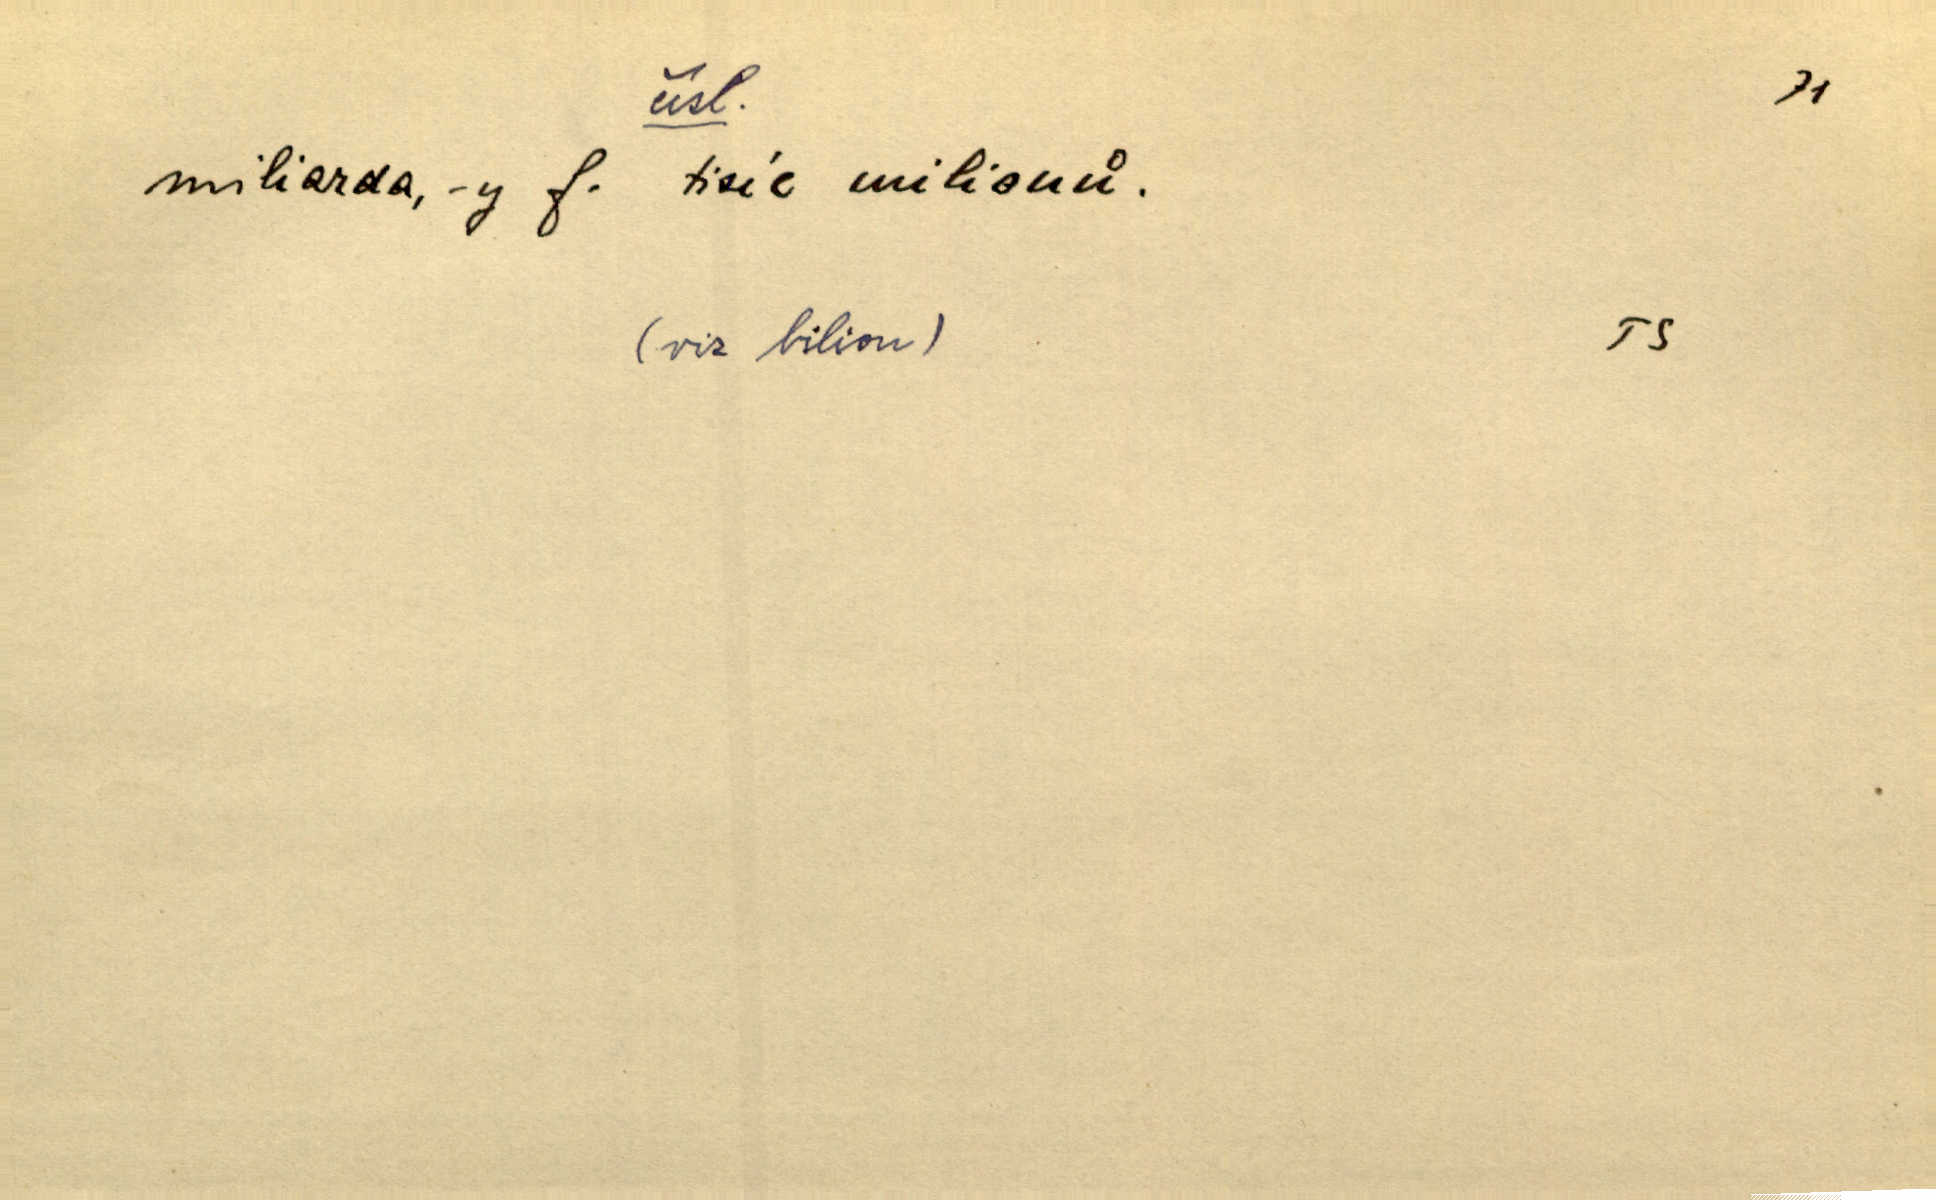 čísl.
71
miliarda, -y f. tisíc milionů.
(viz bilion)
TS